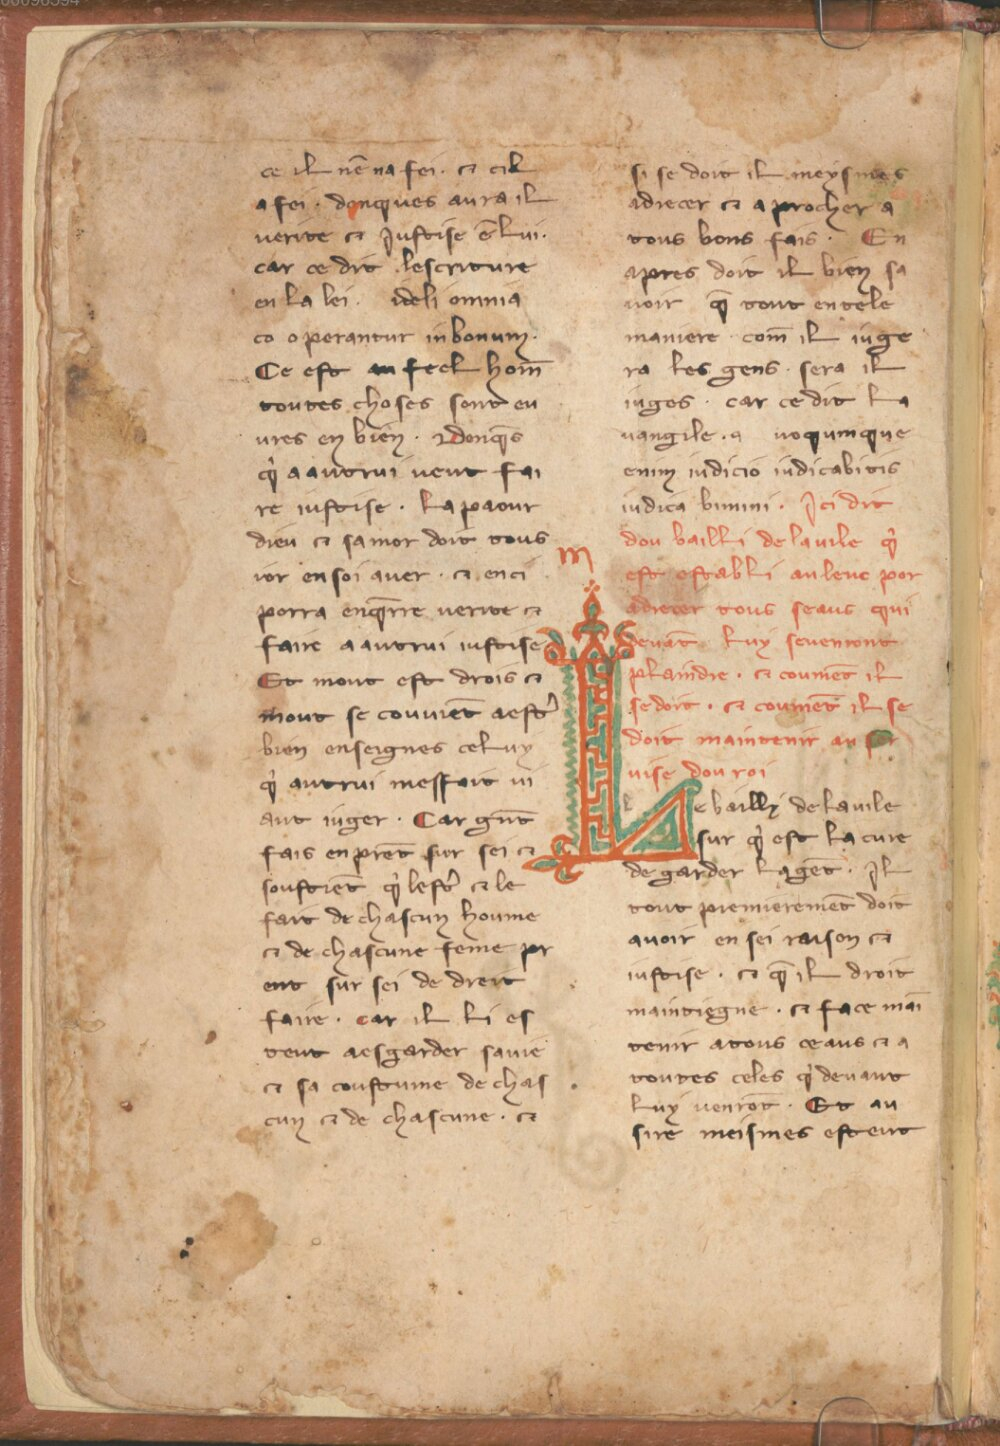 ce il nẽ na fei. ⁊ cil
a fei. donques aura il
uerite ⁊ Justise ẽ lui.
car ce dit lescriture
en la lei. ideli omnia
co operantur inbonum.
Ce est au feel hom̃
toutes choses sont eu
ures en bien. adonq̃s
q̇ a autrui ueut fai
re iustise. La paour
dieu ⁊ samor doit tous
ior en soi auer. ⁊ enci
porra enq̃rre uerite ⁊
faire a autrui iustise
Et mout est drois ⁊
mout se couuiẽt aest᷑
bien enseignes celuy
q̇ autrui meffait ui
aut iuger. Car gñt
fais en prẽt sur sei ⁊
soustiẽt q̇ lest᷑ ⁊ le
fait de chascun houme
⁊ de chascune feme pr
ent sur sei de dreit
faire. car il li es
teut aesgarder sauie
⁊ sa coustume de chas
cun ⁊ de chascune. ⁊
si se doit il meysmes
adrecer ⁊ a procher a
tous bons fais. En
apres doit il bien sa
uoir q̃ tout en tele
maniere com̃ il iuge
ra les gens. sera il
iuges. car ce dit la
uangile. a uoqumque
enim iudicio iudicabitis
iudica bimini. Ici dit
dou bailli de la uile q̇
est establi au leuc por
adrecer tous seaus qui
deuãt luy seuenront
plaindre. ⁊ coumẽt il
se doit. ⁊ coumẽt il se
doit maintenir au ser
uise dou roi
m
Le bailly de la uile
sur q̇ est la cure
de garder la gẽt. Il
tout premieremẽt doit
auoir en sei raison ⁊
iustise. ⁊ q̃ il droit
maintiegne. ⁊ face mai
tenir a tous ceaus ⁊ a
toutes celes q̇ deuant
luy uenrõt. Et au
sire meismes esteut